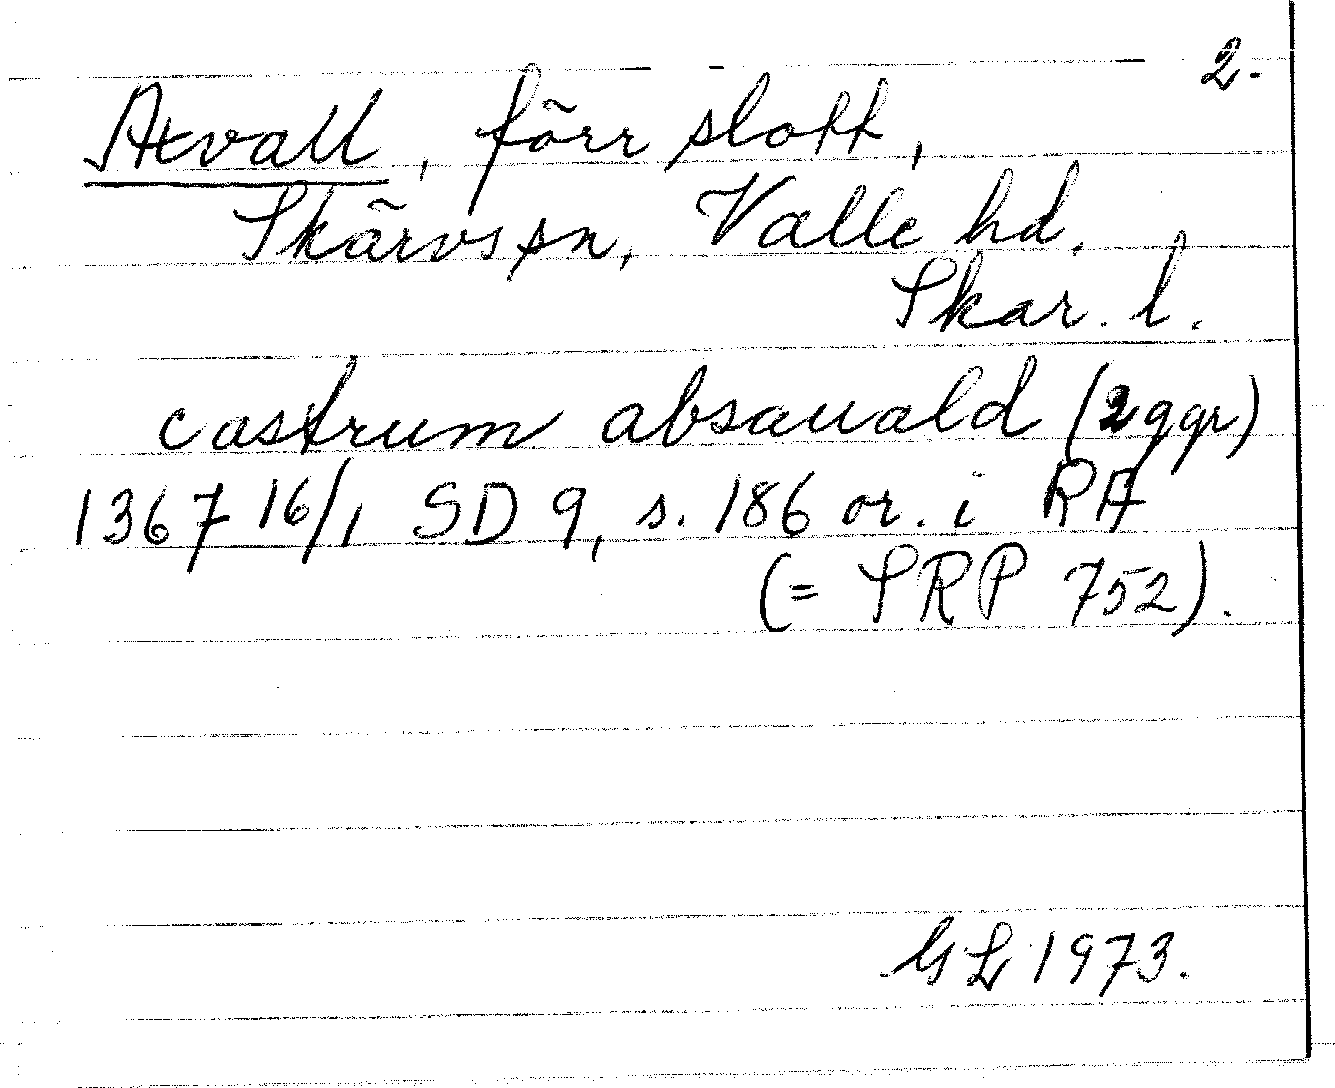 2.
Axvall, förr slott,
Skärvs sn, Valle hd.
Skar. l.
castrum absauald (2 ggr)
1367 16/1 SD 9, s. 186 or. i RA
(= SRP 752).
GL 1973.